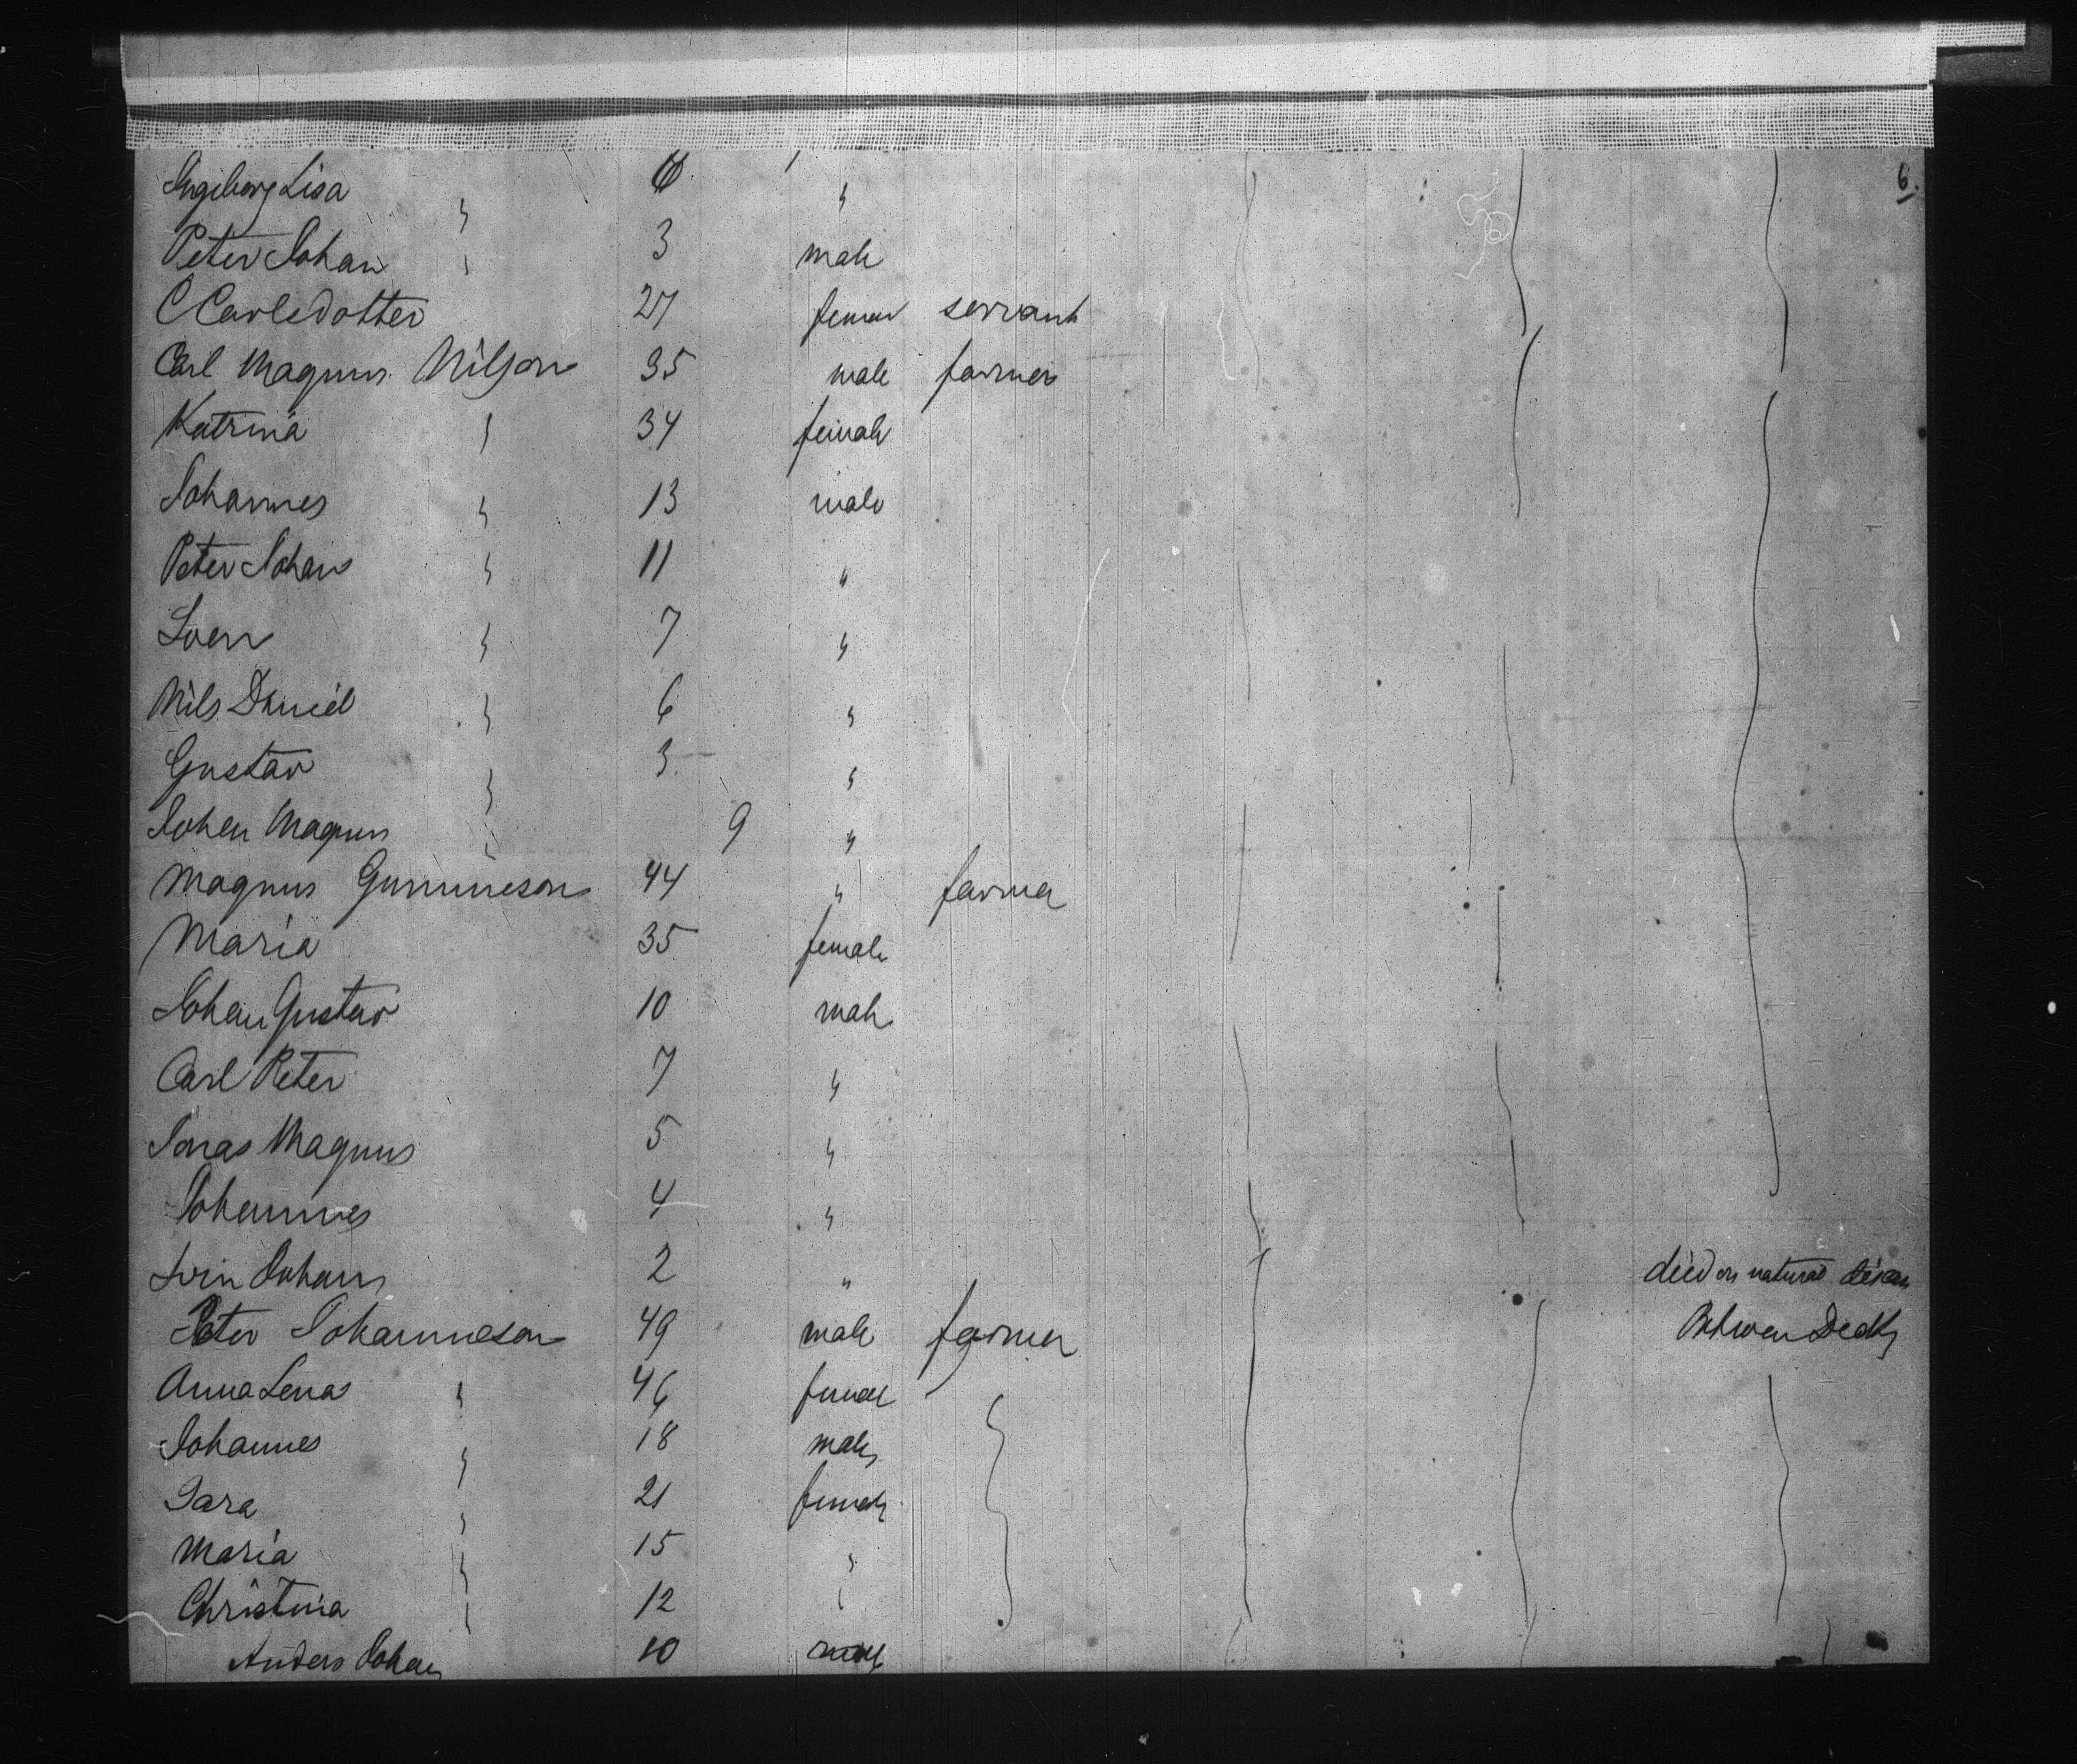 6.
Ingiborg Lisa "
Peter Johan " 3 male
C Carlsdotter 27 servant
Carl Magnus Nilson 35 male farmer
Katrina " 34 female
Johannes " 13 male
Peter Johan " 11 "
Sven " 7 "
Nils Daniel " 6 "
Gustav " 3 "
Johan Magnus " 9 "
Magnus Gummeson 44 " farmer
Maria 35 female
Johan Gustav 10 male
Carl Peter 7 "
Jonas Magnus 5 "
Johannes 4 "
Johan 2 " died on natural
Peter Johanneson 49 male farmer
Anna Lena " 46 female
Johannes " 18 male
Sara " 21 female
Maria " 15 "
Christina " 12 "
Anders Johan 10 male